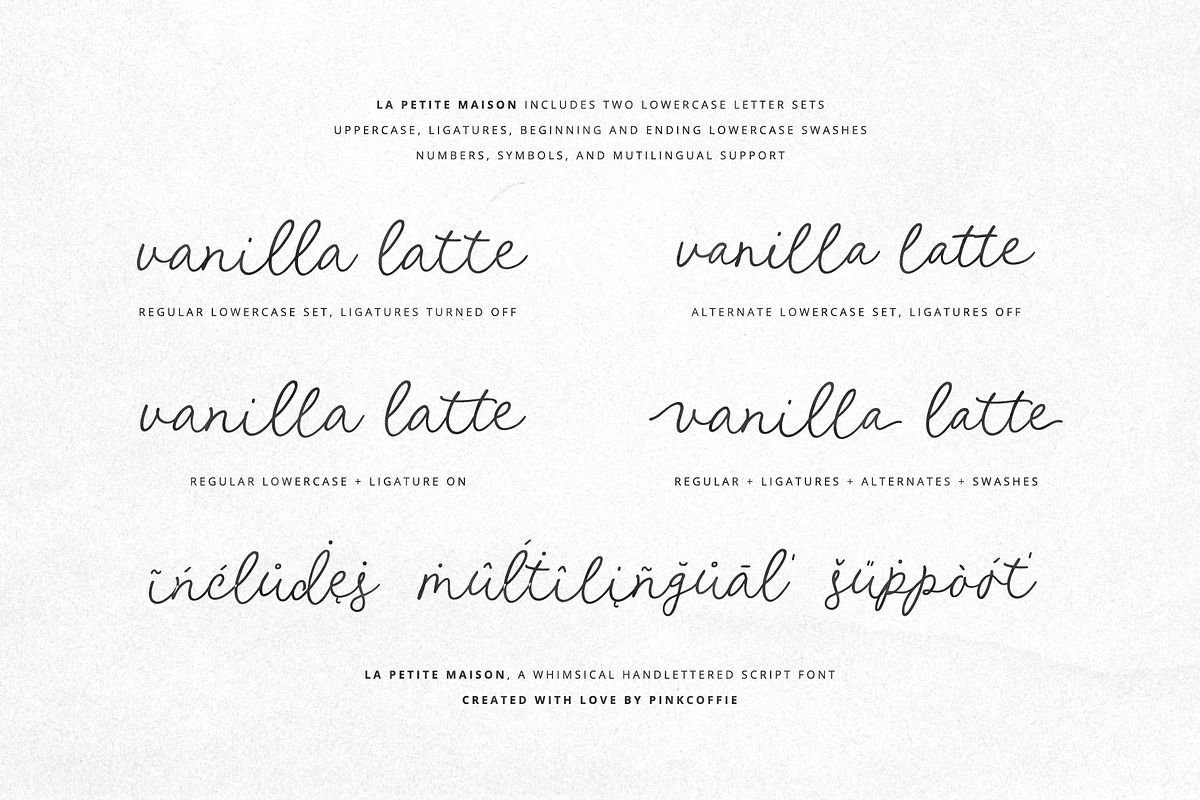 LA PETITE MAISON INCLUDES TWO LOWERCASE LETTER SETS
UPPERCASE, LIGATURES, BEGINNING AND ENDING LOWERCASE SWASHES
NUMBERS, SYMBOLS, AND MUTILINGUAL SUPPORT
vanilla latte
REGULAR LOWERCASE SET, LIGATURES TURNED OFF
vanilla latte
ALTERNATE LOWERCASE SET, LIGATURES OFF
vanilla latte
REGULAR LOWERCASE + LIGATURE ON
vanilla latte
REGULAR + LIGATURES + ALTERNATES + SWASHES
ĩńćlůḋęṡ ṁûĺťîlįñğůāľ šüṗpòŕť
LA PETITE MAISON, A WHIMSICAL HANDLETTERED SCRIPT FONT
CREATED WITH LOVE BY PINKCOFFIE